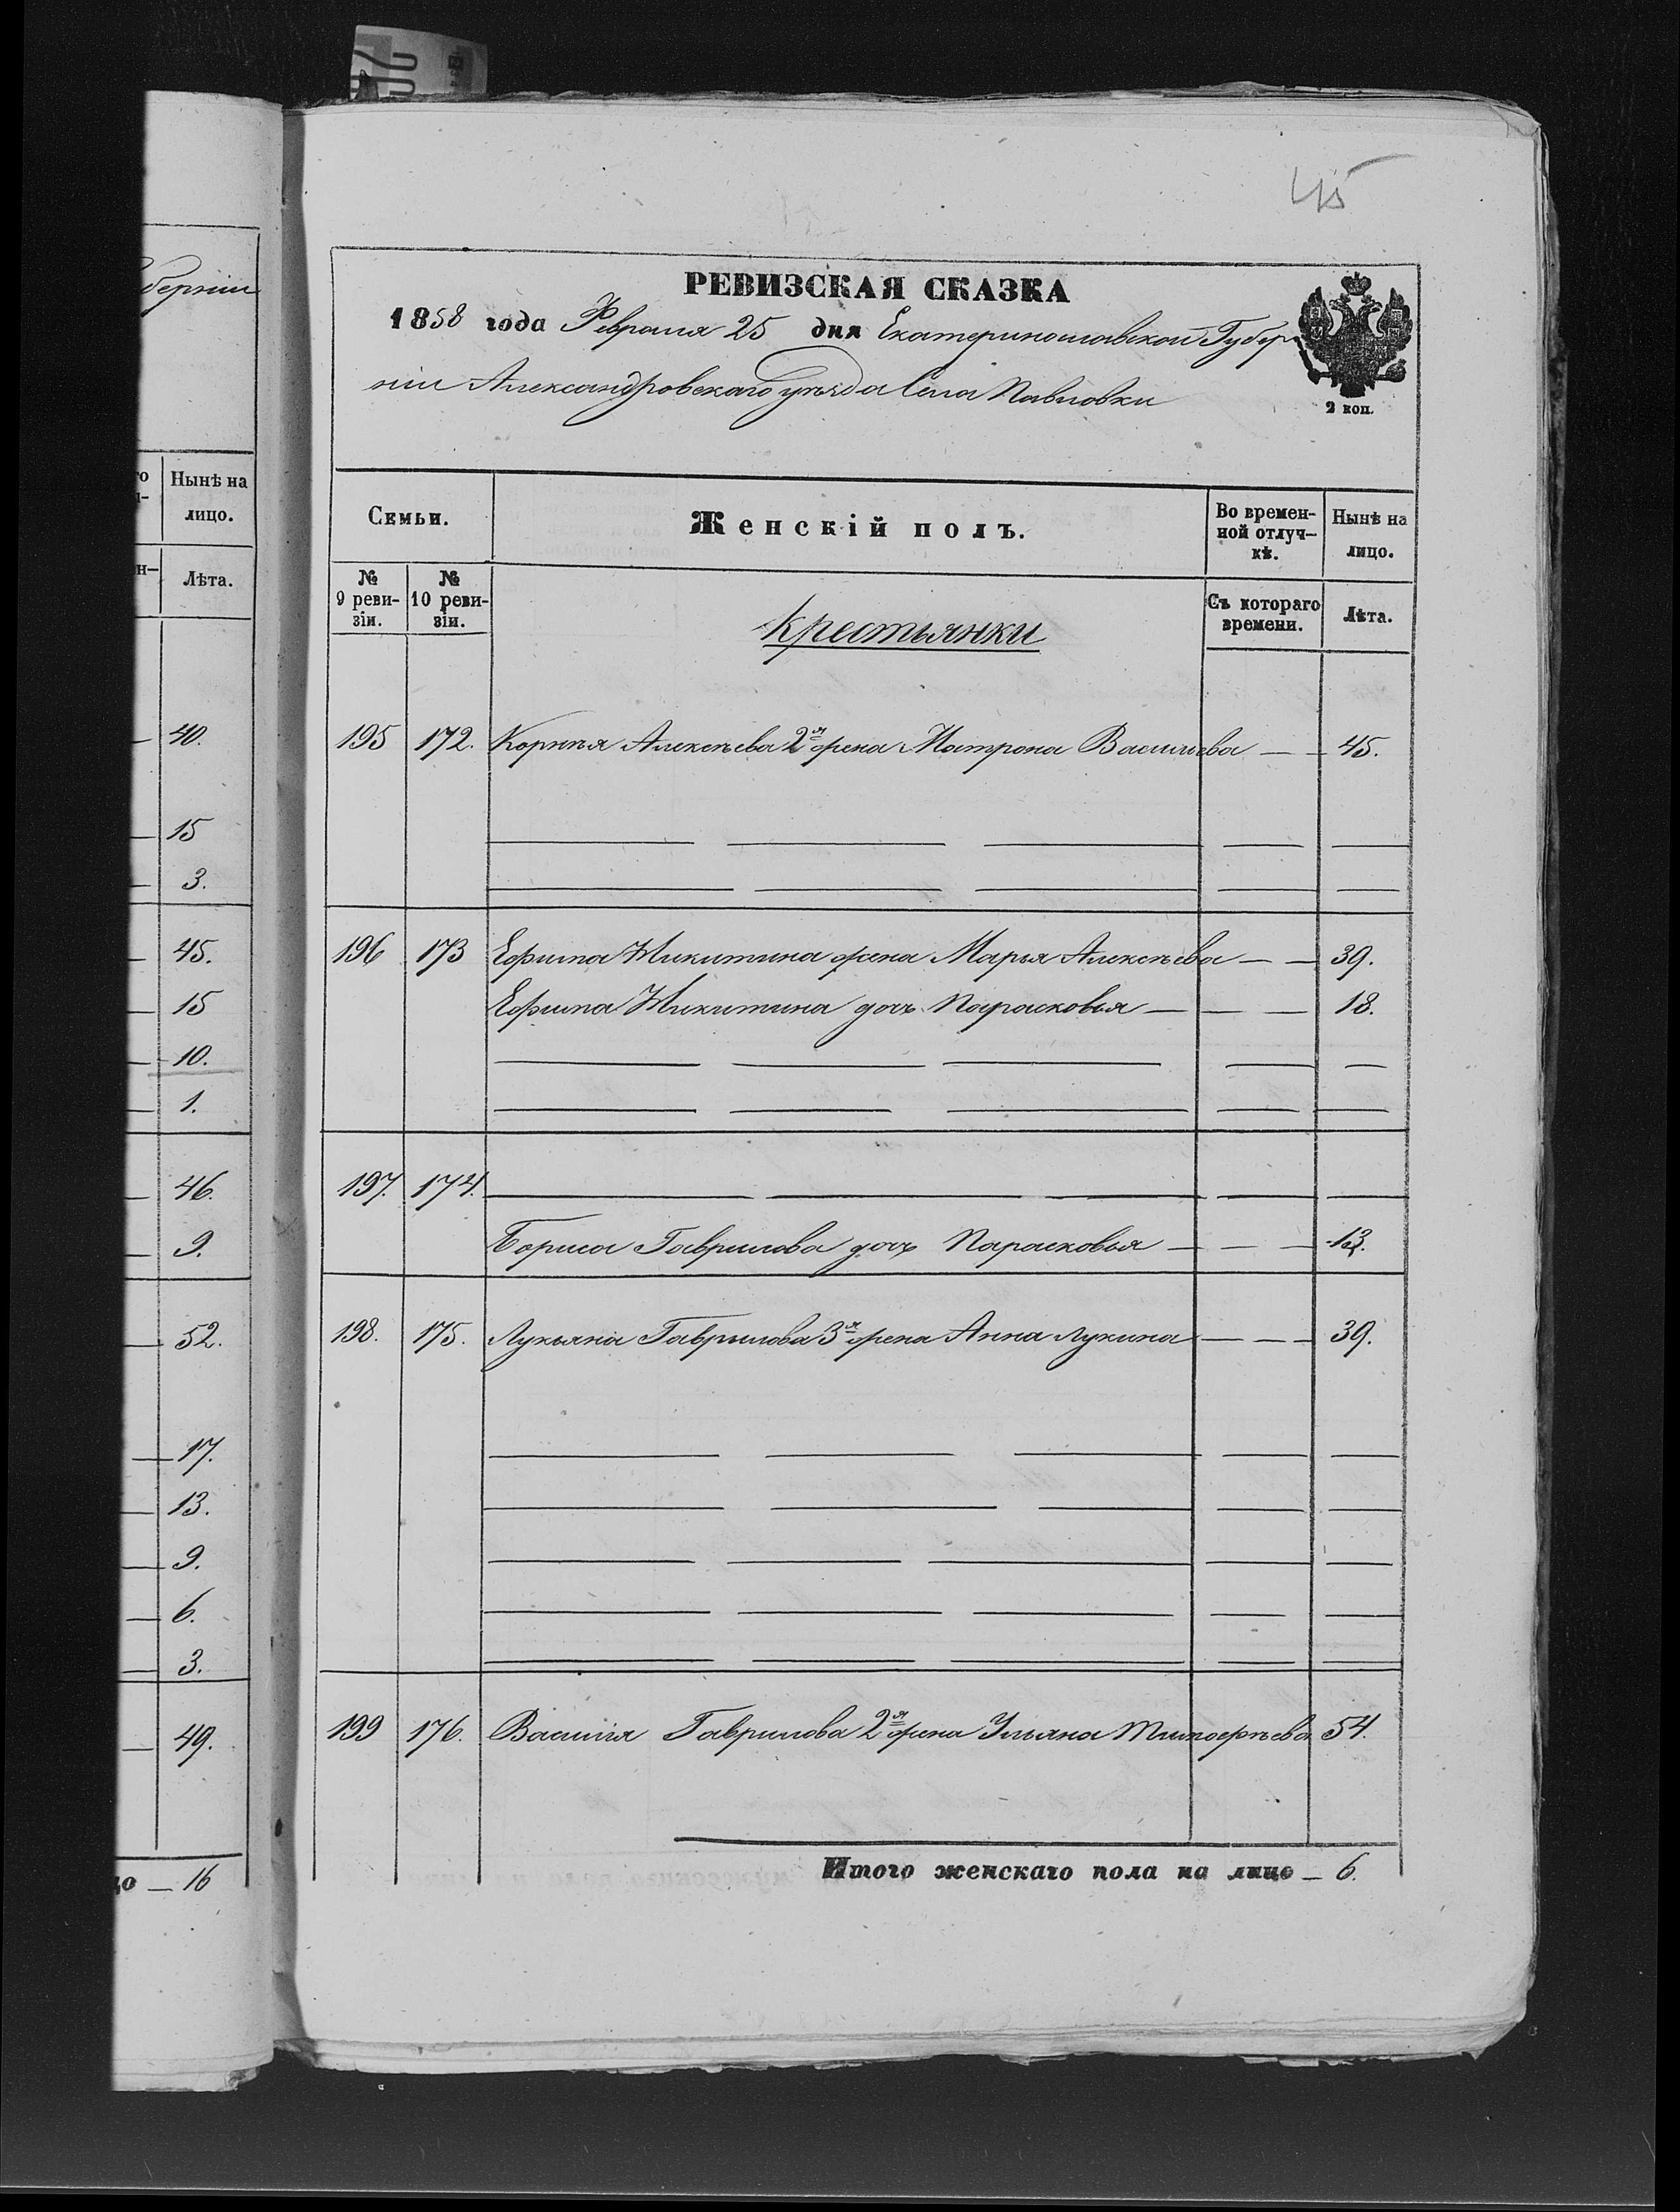 45
РЕВИЗСКАЯ СКАЗКА
1858 года Февраля 25 дня Екатеринославской Губер
ніи Александровскаго уѣзда Села Павловки
2 коп.
Семьи.
Женскій полъ.
Во времен-
ной отлуч-
кѣ.
Нынѣ на
лицо.
№
9 реви-
зіи.
№
10 реви-
зіи.
Съ котораго
времени.
Лѣта.
Крестьянки
195 172. Корнѣя Алексѣева 2я жена Матрона Васильева — — 45.
196 173 Ефима Никитина жена Марья Алексѣева — — 39.
Ефима Никитина дочь Парасковья — — — 18.
197. 174.
Бориса Гаврилова дочь Парасковья — — — 13.
198. 175. Лукьяна Гаврилова 3я жена Анна Лукина — — — 39.
199 176. Василія Гаврилова 2я жена Ульяна Тимофѣева 54.
Итого женскаго пола на лицо — 6.
берніи
Нынѣ на
лицо.
Лѣта.
40.
15
3.
45.
15
10.
1.
46.
9.
52.
17.
13.
9.
6.
3.
49.
16